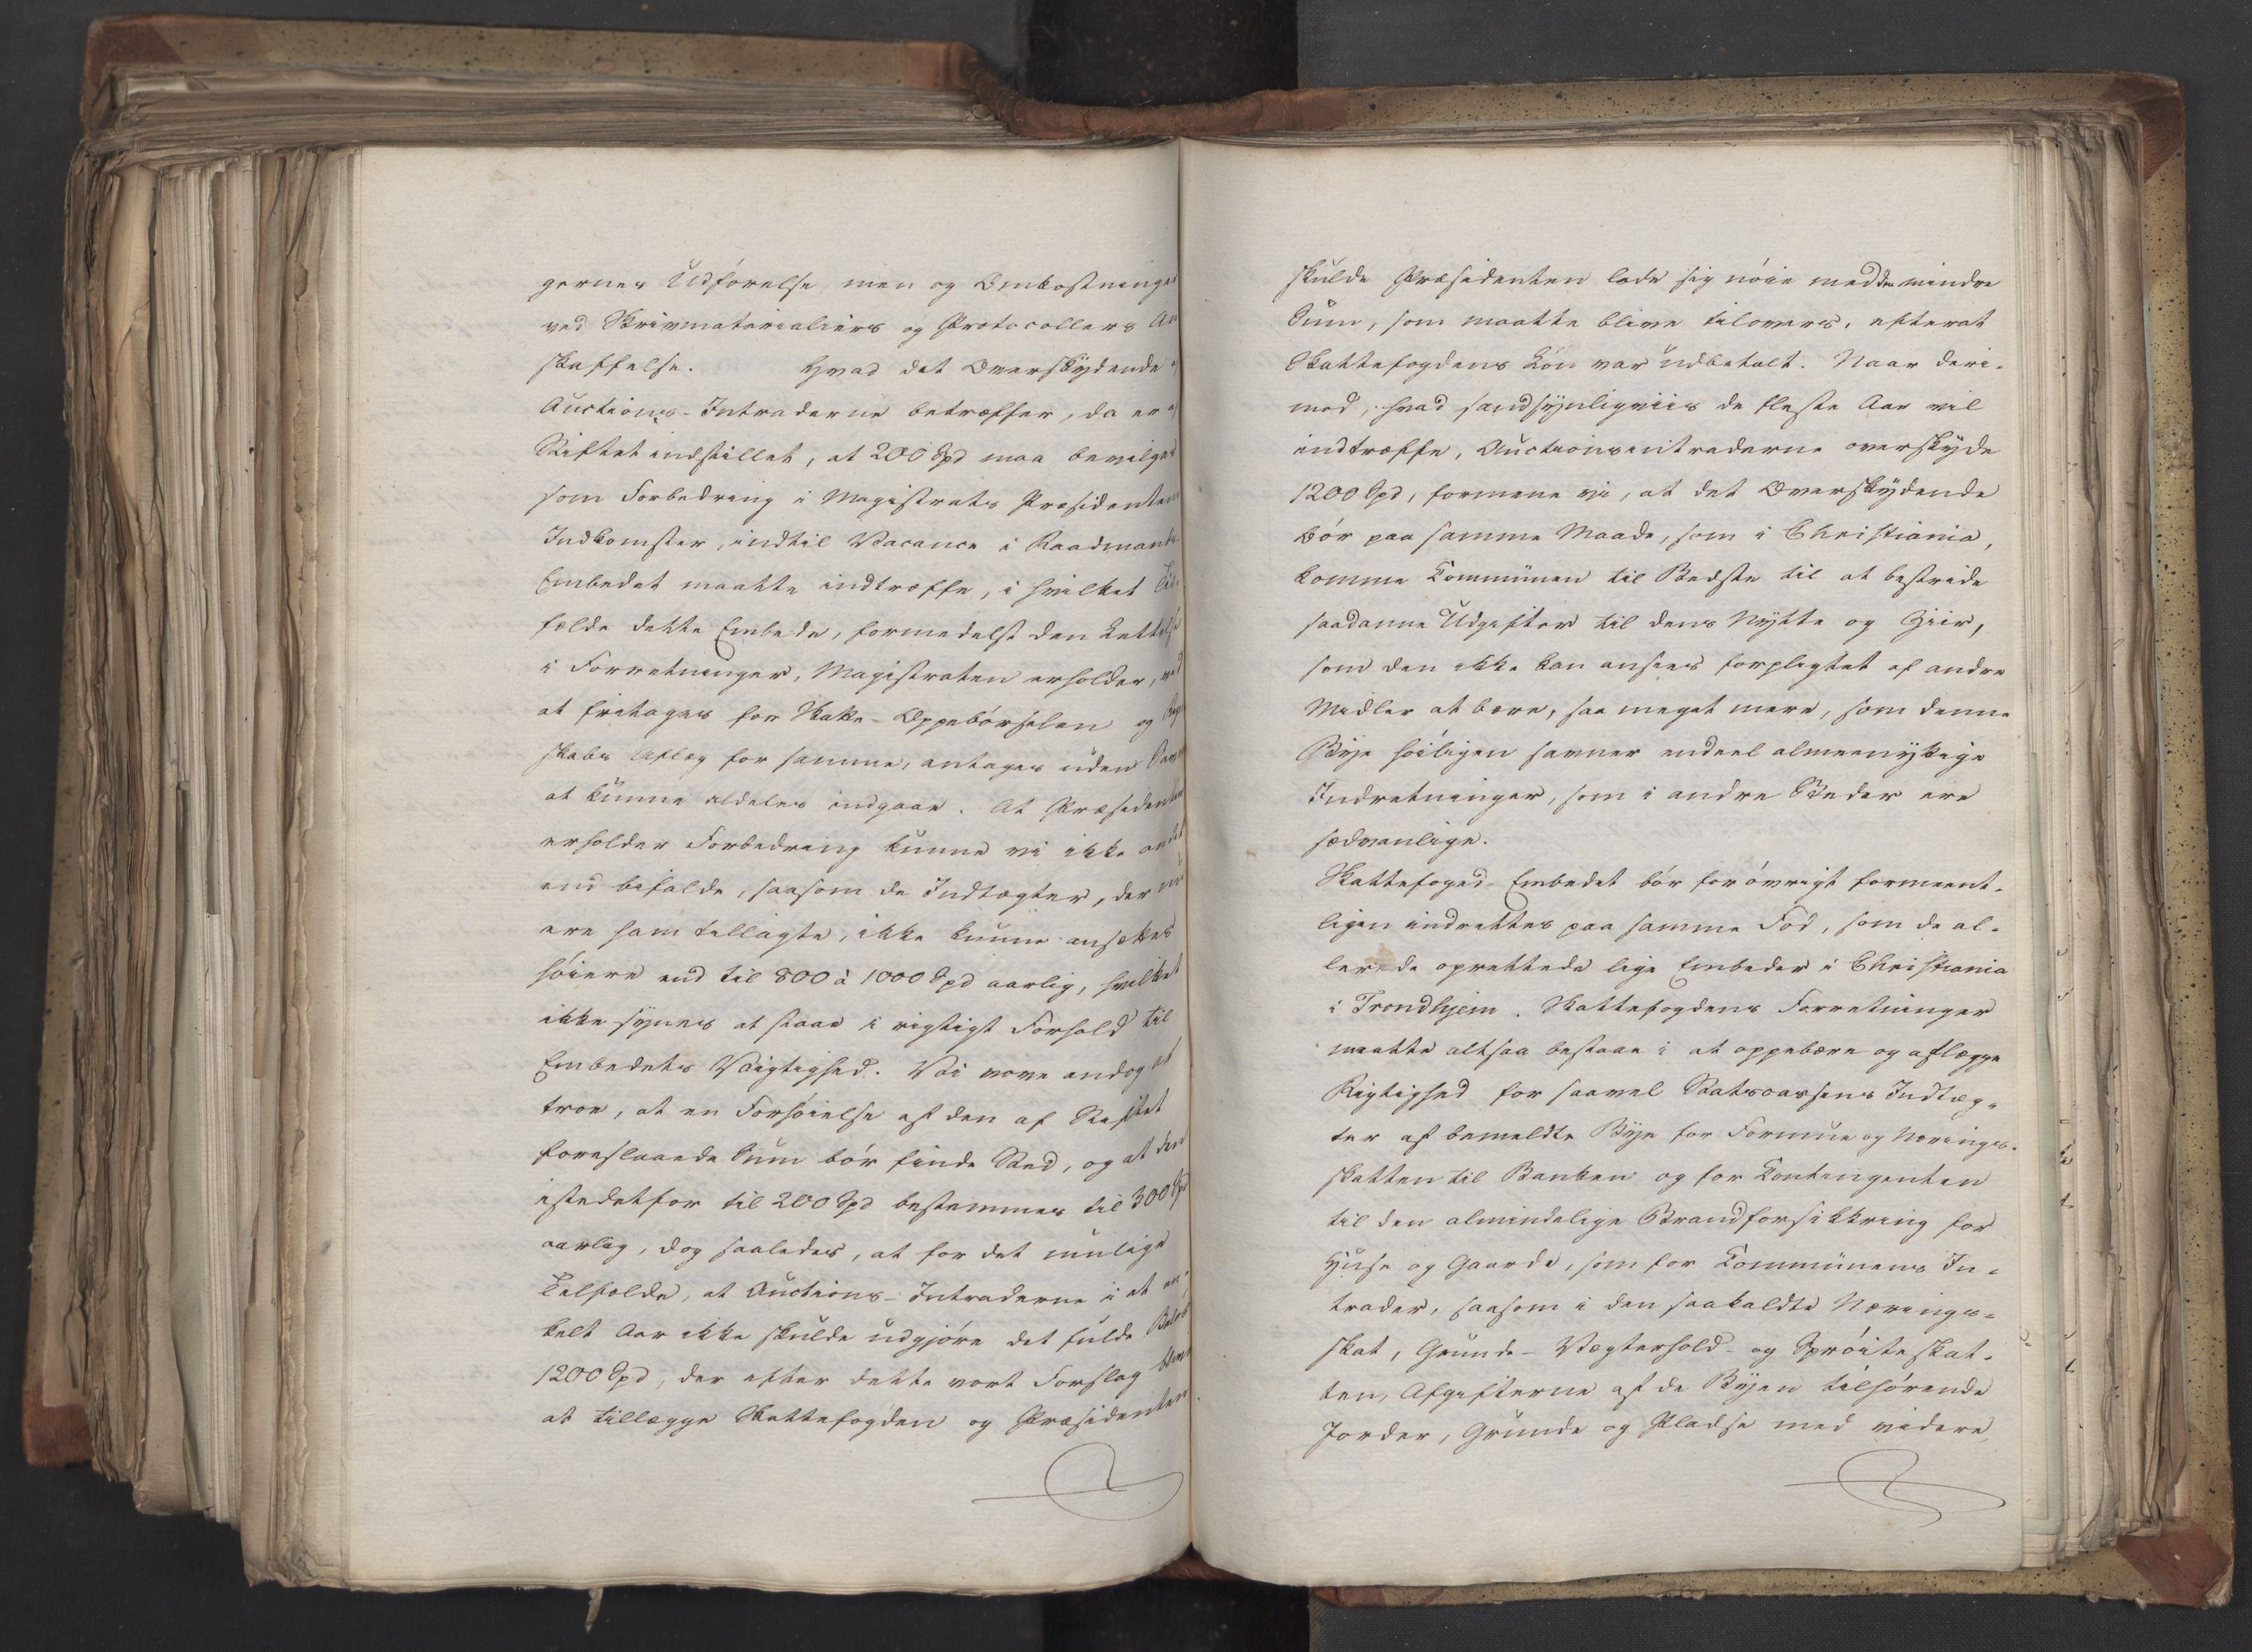 gernes Udförelse men og Omkostninger
ved Skrivmaterialiers og Protocollers An
skaffelse. Hvad det Overskydende af
Auctions-Intraderne betræffer, da er af
Stiftet indstillet, at 200 Spd maa bevilges
som Forbedring i Magistrats Præsidentens
Indkomster, indtil Vacance i Raadmands-
Embedet maatte indtræffe, i hvilket Til-
fælde dette Embede, formedelst den Lettelse
i Forretninger, Magistraten erholder, ved
at fritages for Skatte-Oppebörselen og Regn
skabs Aflæg for samme, antages uden Savn
at kunne aldeles indgaae. At Præsidenten
erholder Forbedring kunne vi ikke andet
end bifalde, saasom de Indtægter, der nu
ere ham tillagte, ikke kunne ansættes
höiere end til 800 à 1000 Spd aarlig, hvilket
ikke synes at staae i rigtigt Forhold til
Embedets Vigtighed. Vi vove endog at
troe, at en Forhöielse af den af Stiftet
foreslaaede Sum bör finde Sted, og at den
istedetfor til 200 Spd bestemmes til 300 Spd
aarlig, dog saaledes, at for det mulige
Tilfælde, at Auctions-Intraderne i et en-
kelt Aar ikke skulde udgjöre det fulde Belöb
1200 Spd, der efter dette vort Forslag blive
at tillægge Skattefogden og Præsidenten
skulde Præsidenten lade sig nöie med den mindre
Sum, som maatte blive tilovers, efterat
Skattefogdens Lön var udbetalt. Naar deri-
mod, hvad sandsynligviis de fleste Aar vil
indtræffe, Auctionsintraderne overskyde
1200 Spd, formene vi, at det Overskydende
bör paa samme Maade, som i Christiania,
komme Kommunen til Bedste til at bestride
saadanne Udgifter til dens Nytte og Ziir,
som den ikke kan ansees forpligtet af andre
Midler at bære, saa meget mere, som denne
Bye höiligen savner endeel almeennyttige
Indretninger, som i andre Stæder ere
sædvanlige.
Skattefoged-Embedet bör forövrigt formeent-
ligen indrettes paa samme Fod, som de al-
lerede oprettede lige Embeder i Christiania
i Trondhjem. Skattefogdens Forretninger
maatte altsaa bestaae i at oppebære og aflægge
Rigtighed for saavel Statscassens Indtæg-
ter af bemeldte Bye for Formue og Nærings-
skatten til Banken og for Kontingenten
til den almindelige Brandforsikkring for
Huse og Gaarde, som for Kommunens In-
trader, saasom i den saakaldte Nærings-
skat, Grunde- Vægterhold- og Spröiteskat-
ten, Afgifterne af de Byen tilhörende
Jorder, Grunde og Pladse med videre